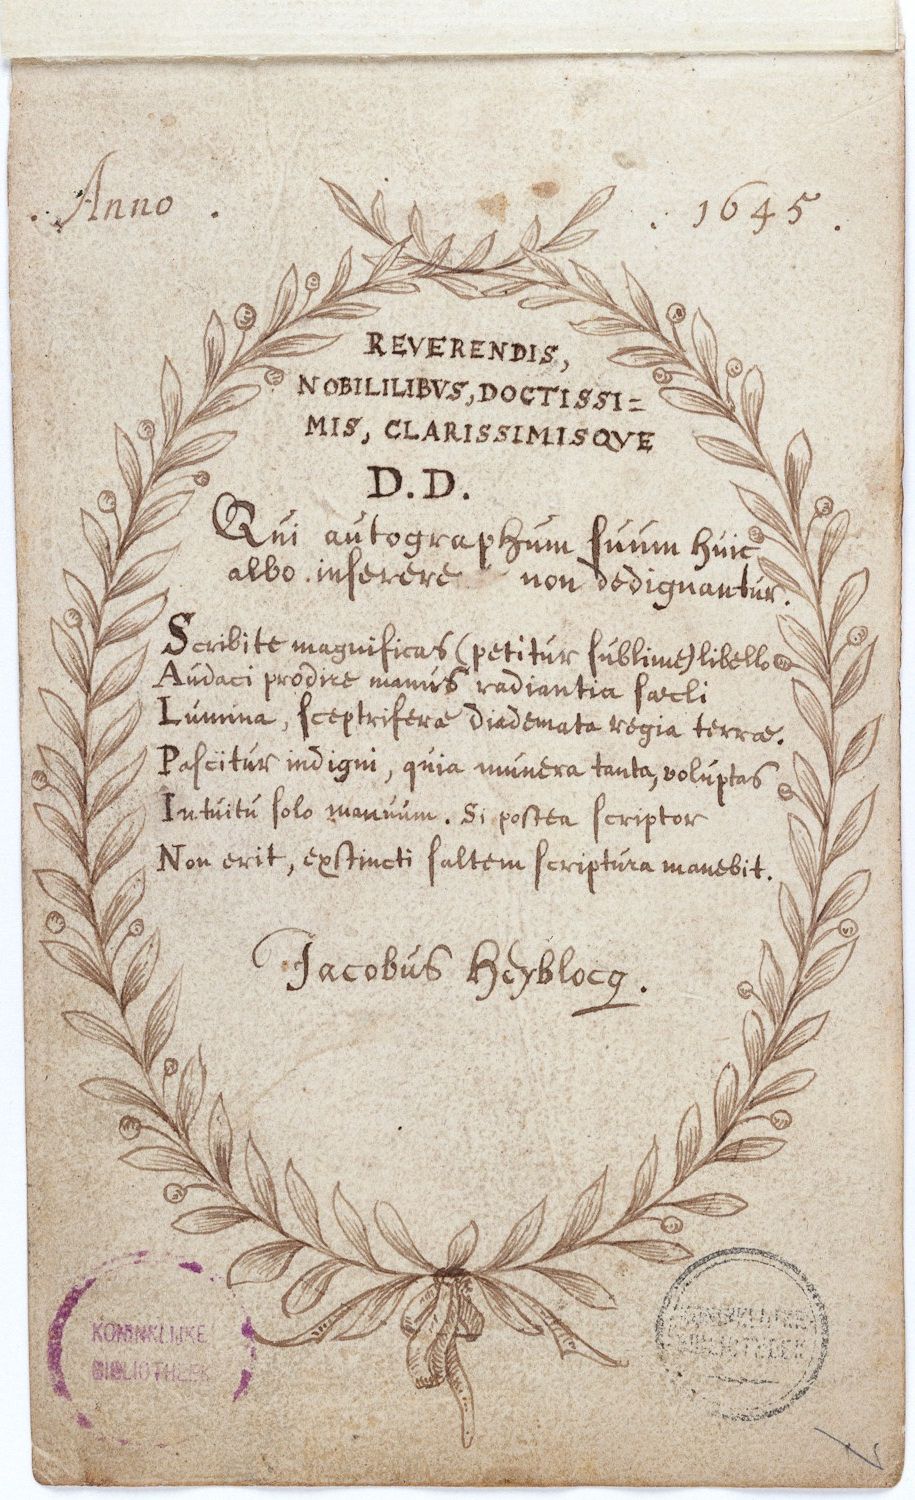 . Anno . . 1645 .
REVERENDIS,
NOBILILIBVS, DOCTISSI=
MIS, CLARISSIMISQVE
D. D.
Qui autographum suum huic
albo inserere non dedignantur.
Scribite magnificas (petitur sublime) libello
Audaci prodire manus radiantia sæcli
Lumina, sceptriferæ diademata regia terræ.
Pascitur indigni, quia munera tanta, voluptas
Intuitu solo manuum. Si postea scriptor
Non erit, exstincti saltem scriptura manebit.
Jacobus Heyblocq.
KONINKLIJKE
BIBLIOTHEEK
KONINKLIJKE
BIBLIOTHEEK